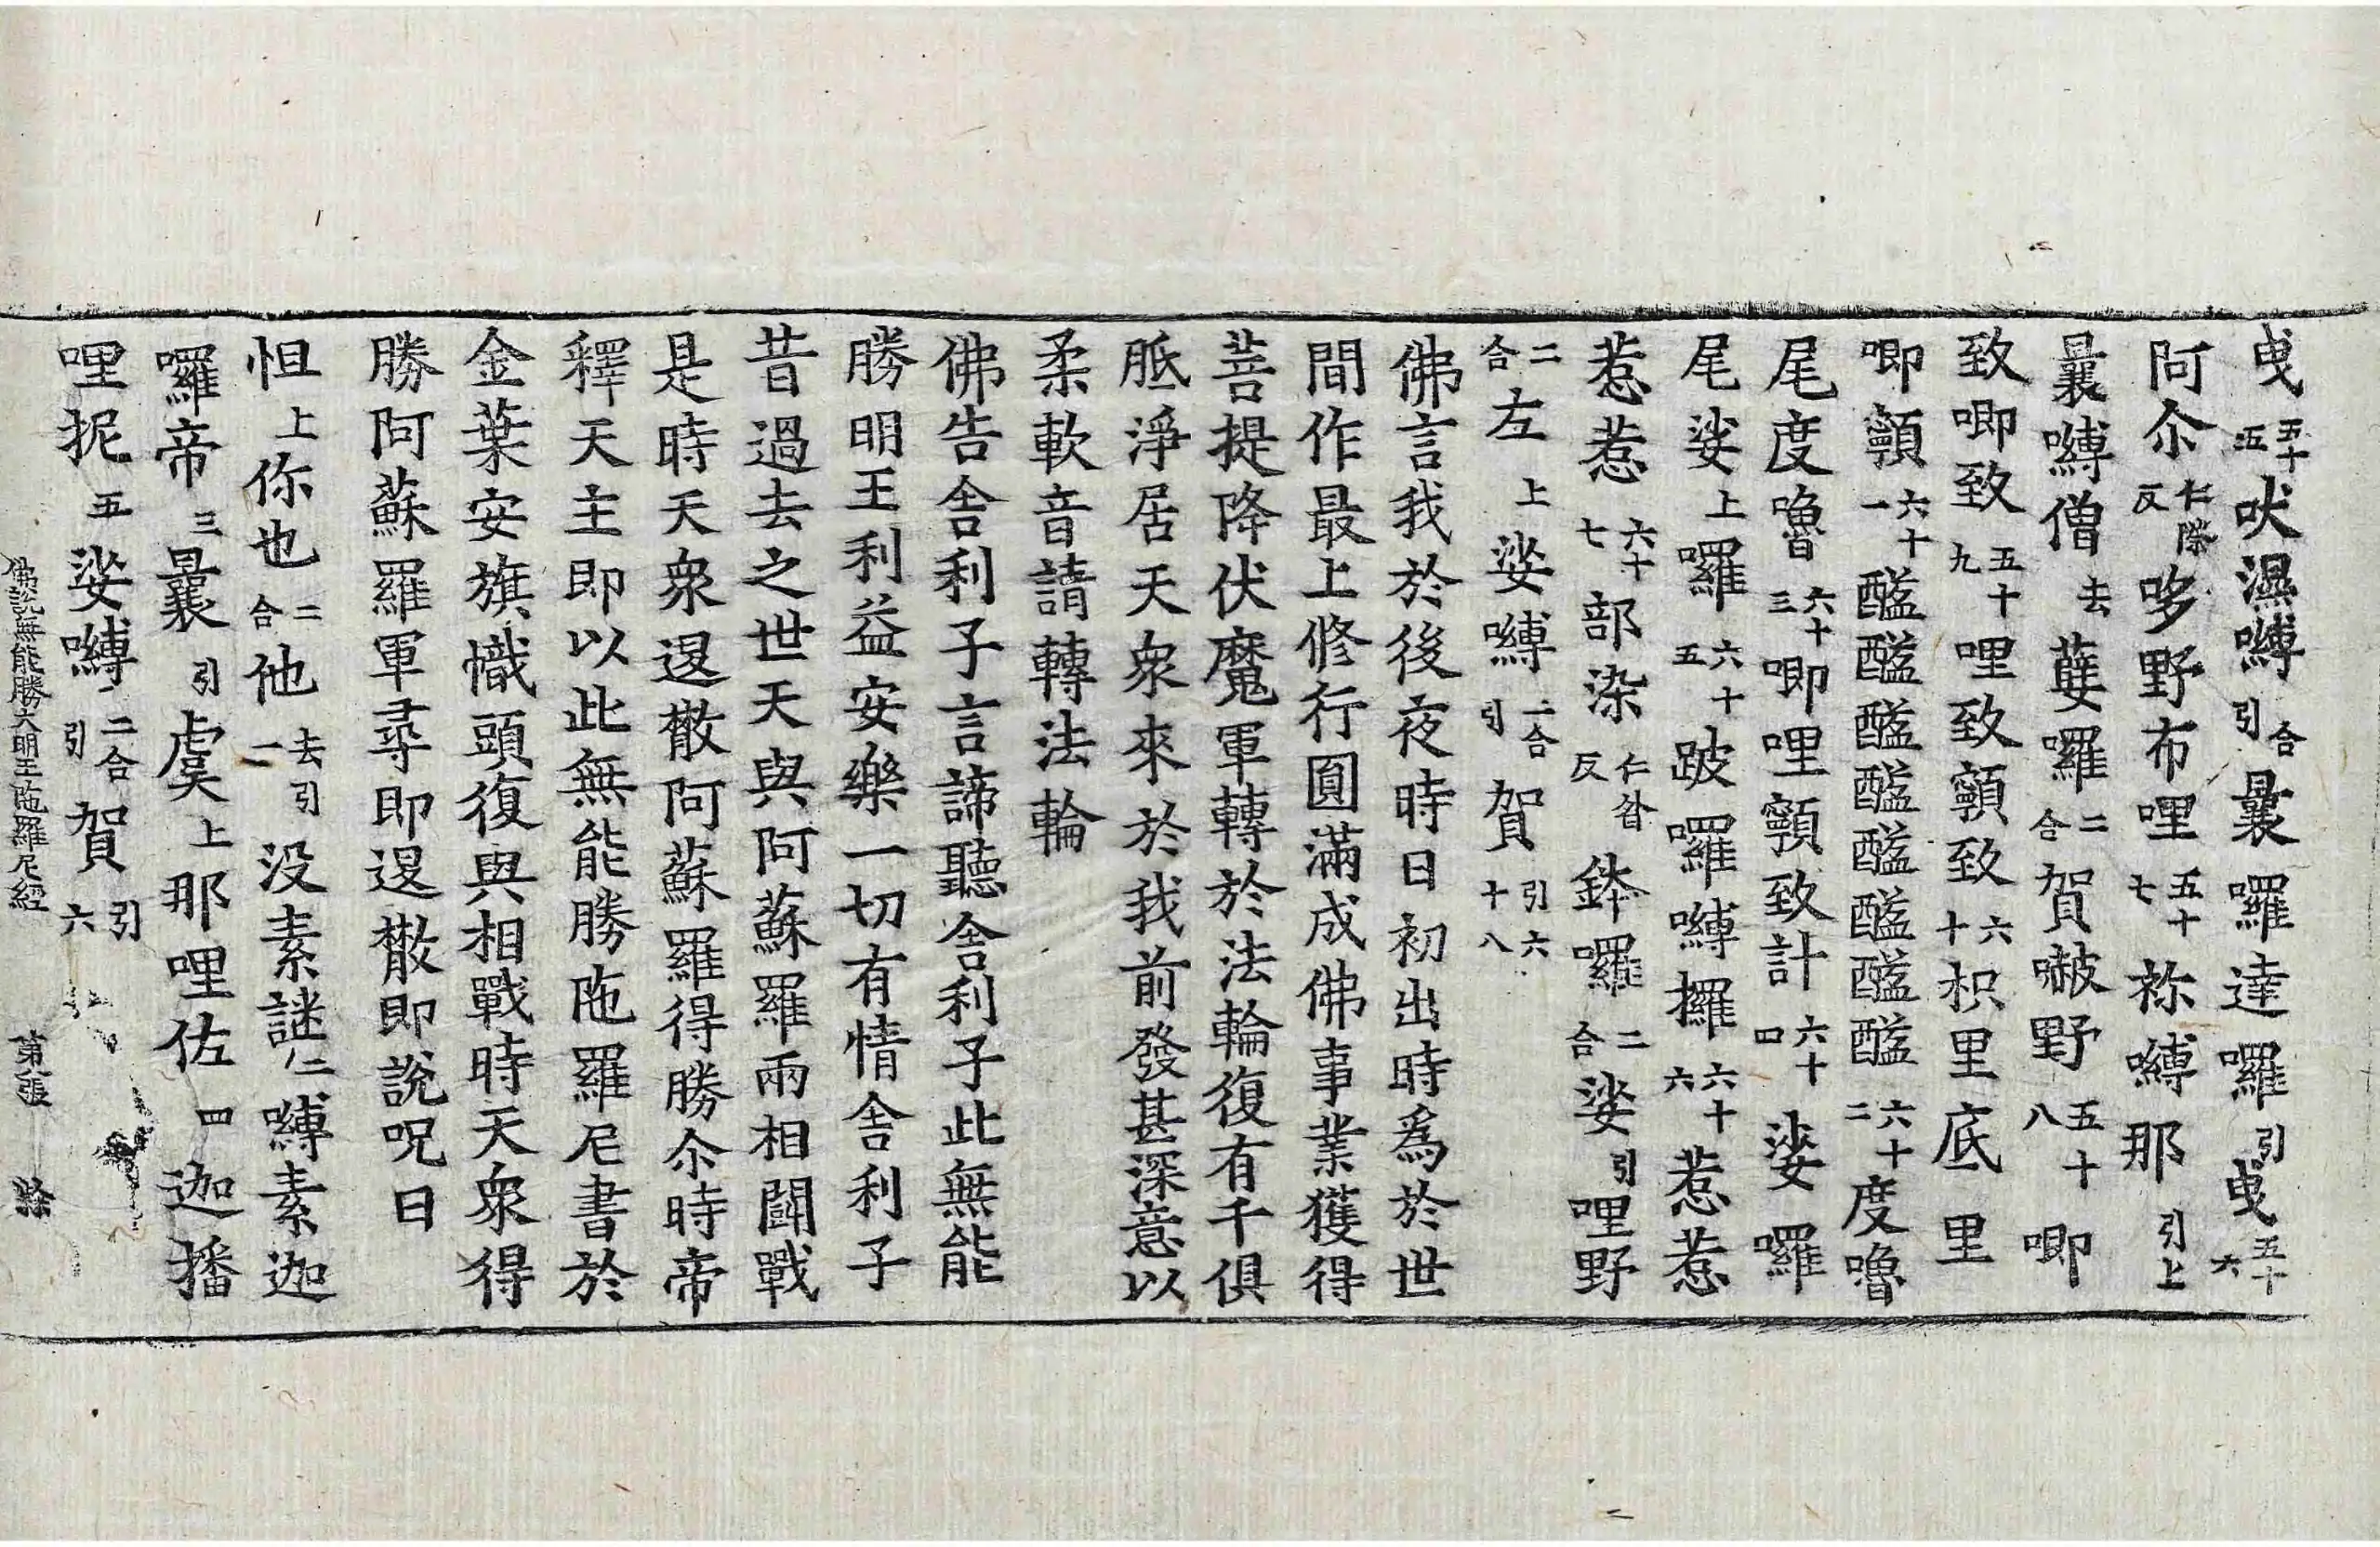 曵五十五吠濕嚩合引曩囉達囉引曵五十六
阿尒仁際反哆野布哩五十七祢嚩那引上
曩嚩僧去蘖囉二合賀嚩野五十八唧
致唧致五十九哩致顙致六十枳里底里
唧顙六十一醯醯醯醯醯醯醯醯六十二度嚕
尾度嚕六十三唧哩顙致計六十四娑囉
尾娑上囉六十五跛囉嚩攞六十六惹惹
惹惹六十七部染仁昝反鉢囉二合娑引哩野
二合左上娑嚩二合引賀引六十八
佛言我於後夜時日初出時爲於世
間作最上修行圓滿成佛事業獲得
菩提降伏魔軍轉於法輪復有千俱
胝淨居天衆來於我前發甚深意以
柔軟音請轉法輪
佛告舎利子言諦聽舎利子此無能
勝明王利益安樂一切有情舎利子
昔過去之世天與阿蘇羅兩相鬪戰
是時天衆退散阿蘇羅得勝尒時帝
釋天主即以此無能勝陁羅尼書於
金葉安旗幟頭復與相戰時天衆得
勝阿蘇羅軍尋即退散即說呪曰
怛上你也二合他去引一没素謎二嚩素迦
囉帝三曩引虞上那哩佐四迦播
哩抳五娑嚩二合引賀引六
佛說無能勝大明王陁羅尼經 第八張